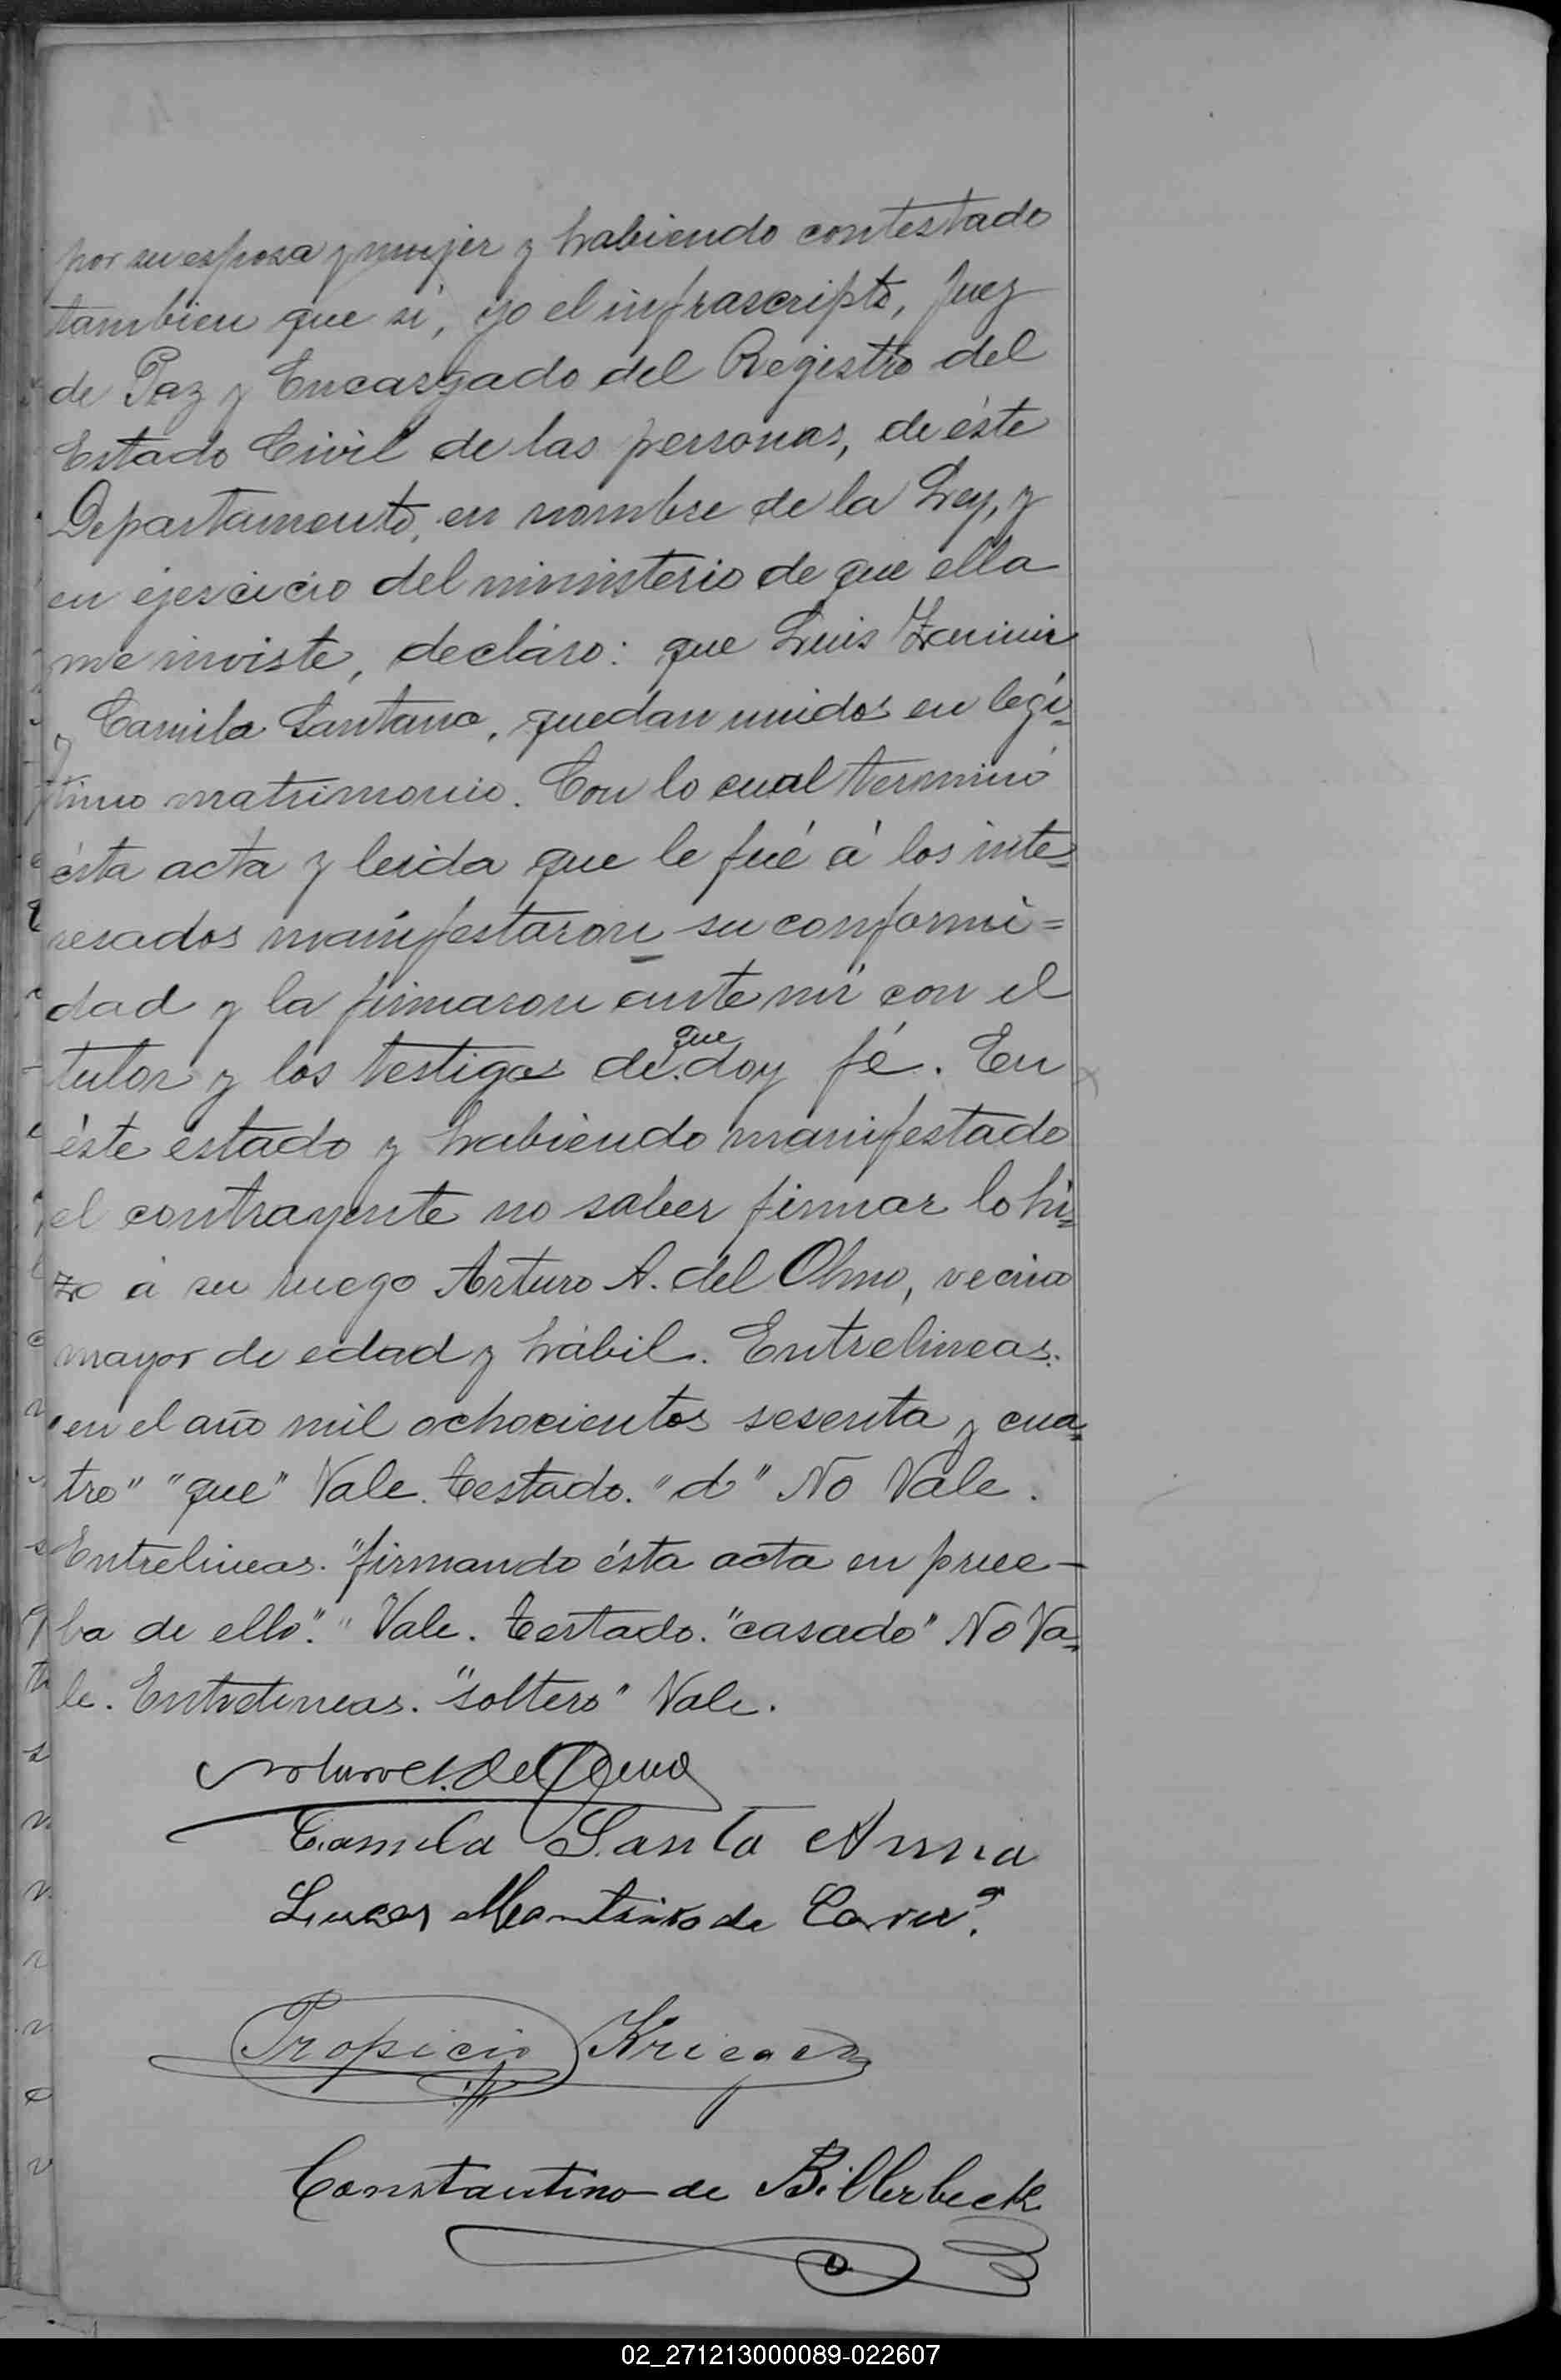 por su esposa y mujer y habiendo contestado
tambien que si, yo el infrascripto, Juez
de Paz y Encargado del Registro del
Estado Civil de las personas, de éste
Departamento, en nombre de la Ley, y
en ejercicio del ministerio de que ella
me inviste, decláro: que Luis
y Camila Santana, quedan unidos en legí=
timo matrimonio. Con lo cual terminó
ésta acta y leida que le fué á los inte=
resados manifestaron su conformi=
dad y la firmaron ante mí con el
tutor y los testigos de que doy fé. En
éste estado y habiendo manifestado
el contrayente no saber firmar lo hi=
zo á su ruego Arturo A. del Olmo, vecino
mayor de edad y hábil. Entrelineas.
"en el año mil ochocientos sesenta y cua=
tro" "que" Vale. Testado. "d" No Vale.
Entrelineas. "firmando ésta acta en prue-
ba de ello"." Vale. Testado. "casado" No Va=
le. Entrelineas. "soltero" Vale.
Arturo A. del Olmo
Camila Santa Anna
Lucas de
Tropicio Krieger
Constantino de Billerbeck
02_271213000089-022607